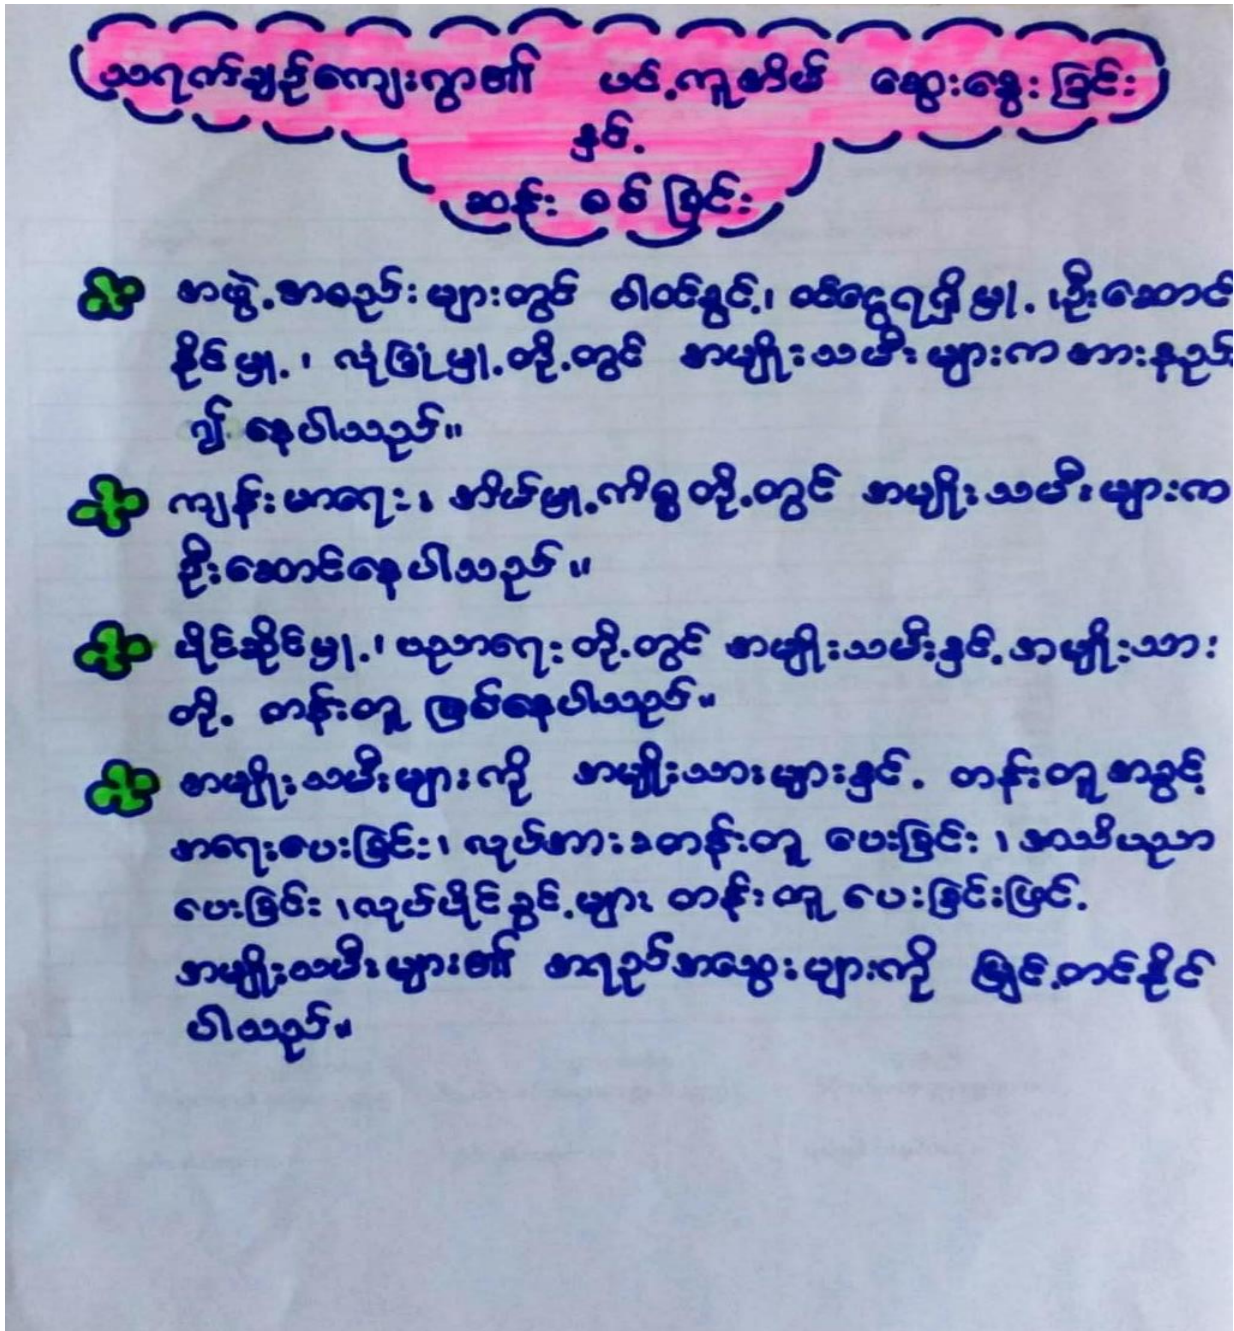 သရက်ချဉ်ကျေးရွာ၏ ပင့်ကူအိမ် ဆွေးနွေးခြင်း
နှင့်
ဆန်းစစ်ခြင်း
အဖွဲ့အစည်းများတွင် ပါဝင်ခွင့်၊ ဝင်ငွေရရှိမှု့ ၊ဦးဆောင်
နိုင်မှု့ ၊ လုံခြုံမှု့တို့တွင် အမျိုးသမီးများက အားနည်း
၍ နေပါသည်။
ကျန်းမာရေး၊ အိမ်မှု့ကိစ္စတို့တွင် အမျိုးသမီးများက
ဦးဆောင်နေပါသည်။
ပိုင်ဆိုင်မှု့၊ ပညာရေးတို့တွင် အမျိုးသမီးနှင့်အမျိုးသား
တို့ တန်းတူ ဖြစ်နေပါသည်။
အမျိုးသမီးများကို အမျိုးသားများနှင့် တန်းတူအခွင့်
အရေးပေးခြင်း၊ လုပ်အားခတန်းတူ ပေးခြင်း ၊ အသိပညာ
ပေးခြင်း ၊လုပ်ပိုင်ခွင့်များ တန်းတူ ပေးခြင်းဖြင့်
အမျိုးသမီးများ၏ အရည်အသွေးများကို မြှင့်တင်နိုင်
ပါသည်။